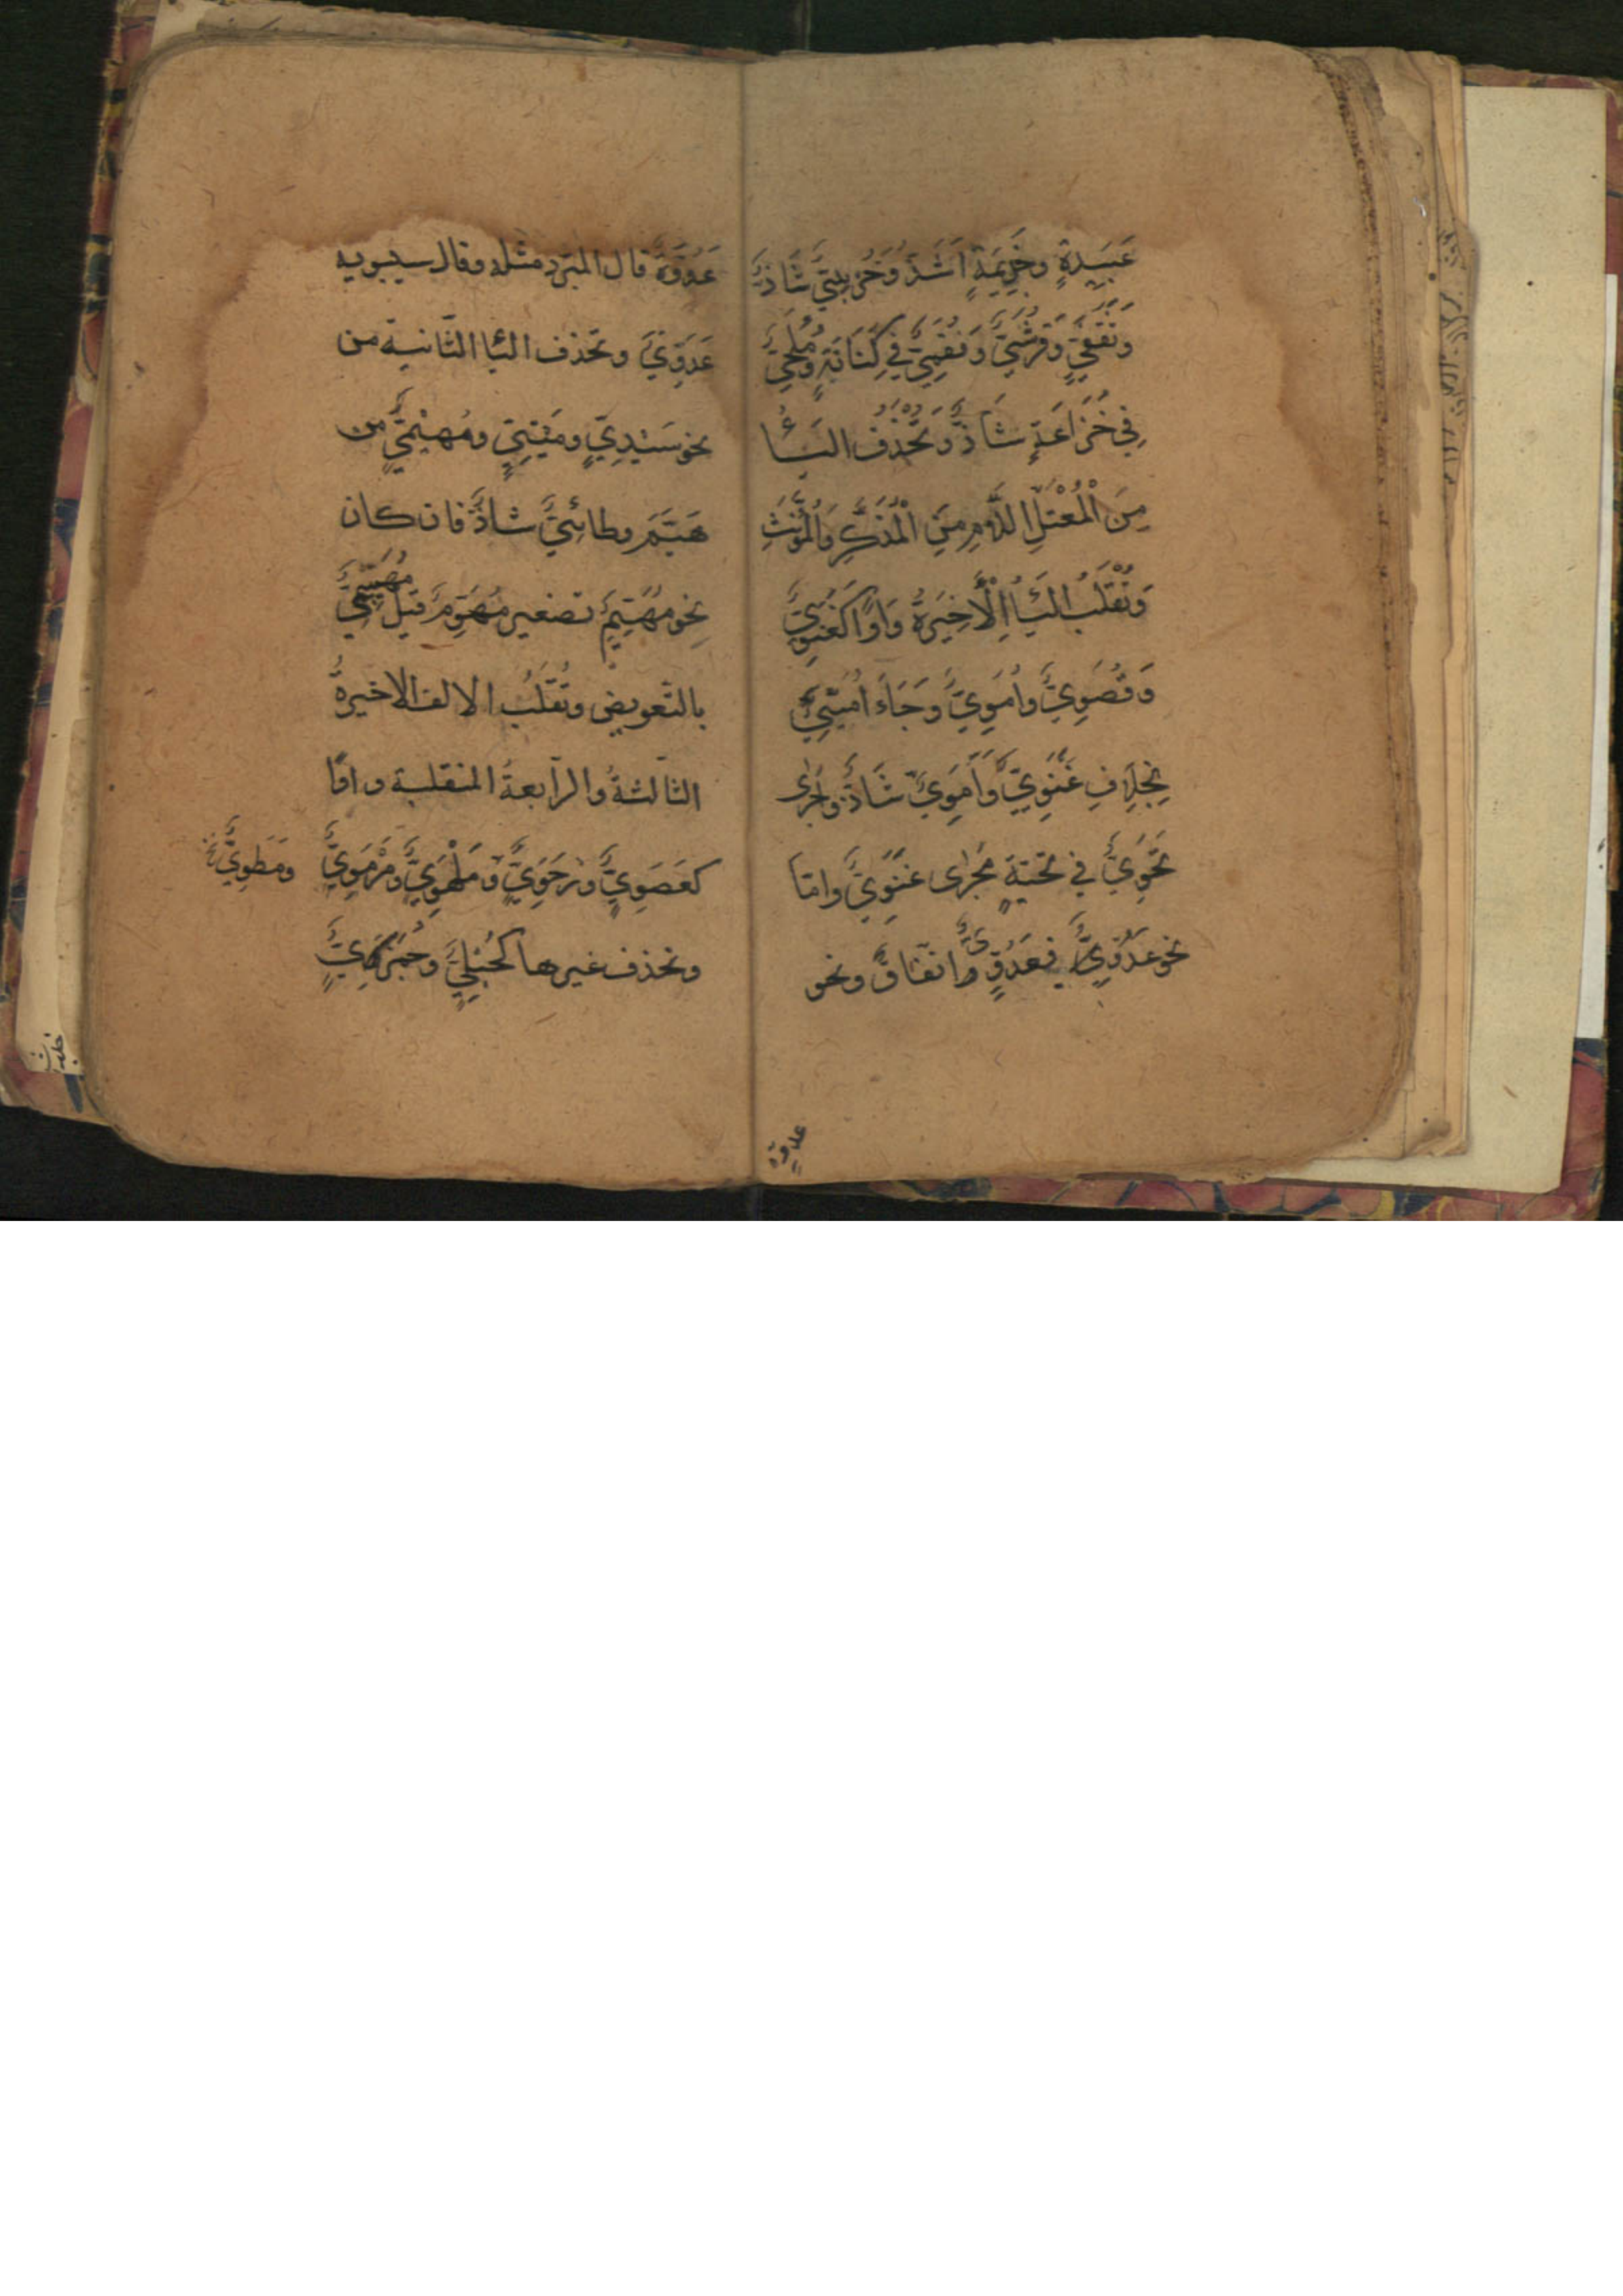 عَبِيدَةٍ وَجَذِيمَةٍ اَشَذُّ وَخُرَيْبِيٌّ شَاذٌّ
وَثَقَفِيٌّ وَقُرَشِيٌّ وَفُقَمِيٌّ فِي كِنَانَةٍ وَمُلَحِيٌّ
فِي خُزَاعَةٍ شَاذٌّ وَتُحْذَفُ اليَاءُ
مِنَ الْمُعْتَلِّ اللَّامِ مِنَ الْمُذَكَّرِ وَالْمُؤَنَّثِ
وَتُقْلَبُ اليَاءُ الْأَخِيرَةُ وَاوًا كَغَنَوِيٍّ
وَقُصَوِيٍّ وَاُمَوِيٍّ وَجَاءَ اُمَيِّيٌّ
بِخِلَافِ غَنَوِيٍّ وَاَمَوِيٌّ شَاذٌّ وَاُجْرِى
تَحَوِيٌّ فِي تَحِيَّةٍ مَجْرٰى غَنَوِيٍّ وامّا
نحو عَدُوِّيٌّ فى عَدُوٍّ اتّفاقٌ ونحو
عدوّة
عَدُوَّةٍ قال المبرّد مثله وقال سيبويه
عَدَوِيٌّ وتحذف اليا الثّانية من
نحو سَيْدِيٍّ ومَيْتِيٍّ ومُهَيْمِيٍّ من
هَيَّمَ وطائِيٌّ شاذٌّ فان كان
نحو مُهَيِّمٍ تصغير مُهَوِّمٍ قيل مُهَيِّيمِيٌّ
بالتّعويض وتُقْلَبُ الالف الاخيرةُ
الثّالثةُ والرّابعةُ المنقلبة واوًا
كعَصَوِيٍّ ورَحَوِيٍّ ومَلْهَوِيٍّ ومَرْمَوِيٍّ
وتحذف غيرها كحُبْلِيٍّ وجَمَزِيٍّ